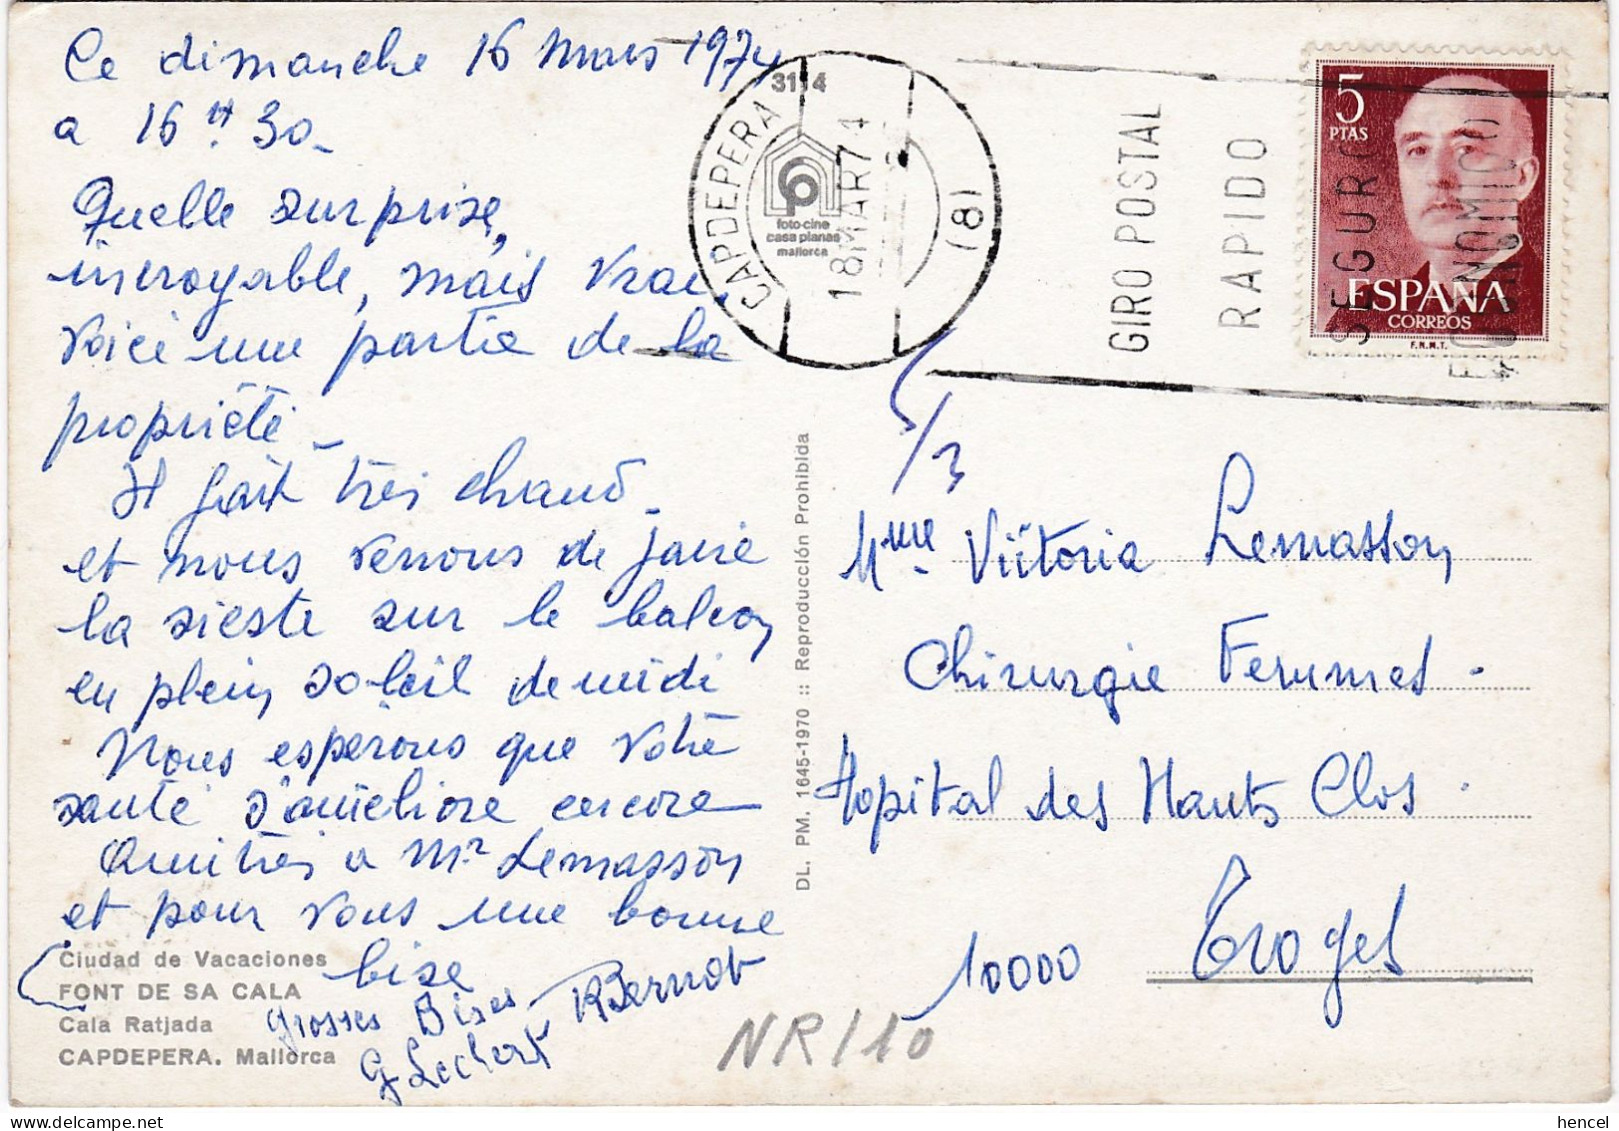 Ce dimanche 16 Mars 1974
a 16 H 30_
Quelle surprise,
incroyable, mais vrai.
Voici une partie de la
propriété_
Il fait très chaud_
et nous venons de faire
la sieste sur le balcon
en plein soleil de midi
Nous espérons que votre
santé s'améliore encore
Amitiés a Mr Lemasson
et pour vous une bonne
bise
Grosses Bises RBernot
G Lechert
Ciudad de Vacaciones
FONT DE SA CALA
Cala Ratjada
CAPDEPERA. Mallorca
3114
foto-cine
casa planas
mallorca
CAPDEPERA
18MAR74
(8)
GIRO POSTAL
RAPIDO
SEGURO
ECONOMICO
5
PTAS
ESPAÑA
CORREOS
F.N.M.T.
DL. PM. 1645-1970 :: Reproducción Prohibida
Mme Viitoria Lemasson
Chirurgie Femmes.
Hopital des Hauts Clos.
10000 Troyes
NR/10
hencel